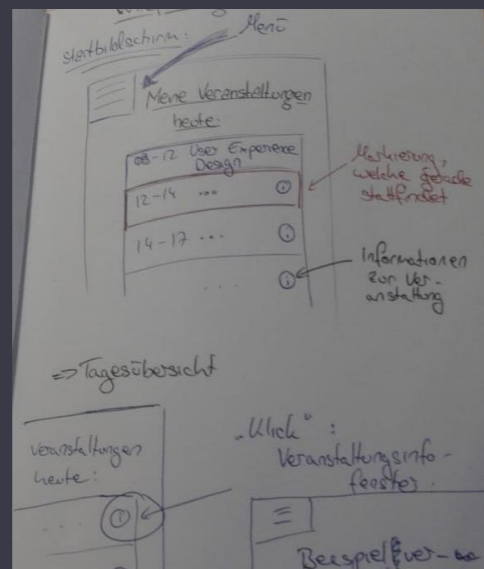 Startbildschirm:
Menü
Meine Veranstaltungen
heute:
08-12 User Experience
Design
12-14 ...
14-17 ...
...
Markierung,
welche gerade
stattfindet
Informationen
zur Ver-
anstaltung
=> Tagesübersicht
Veranstaltungen
heute:
...
„Klick“ :
Veranstaltungsinfo-
fenster
Beispielver-